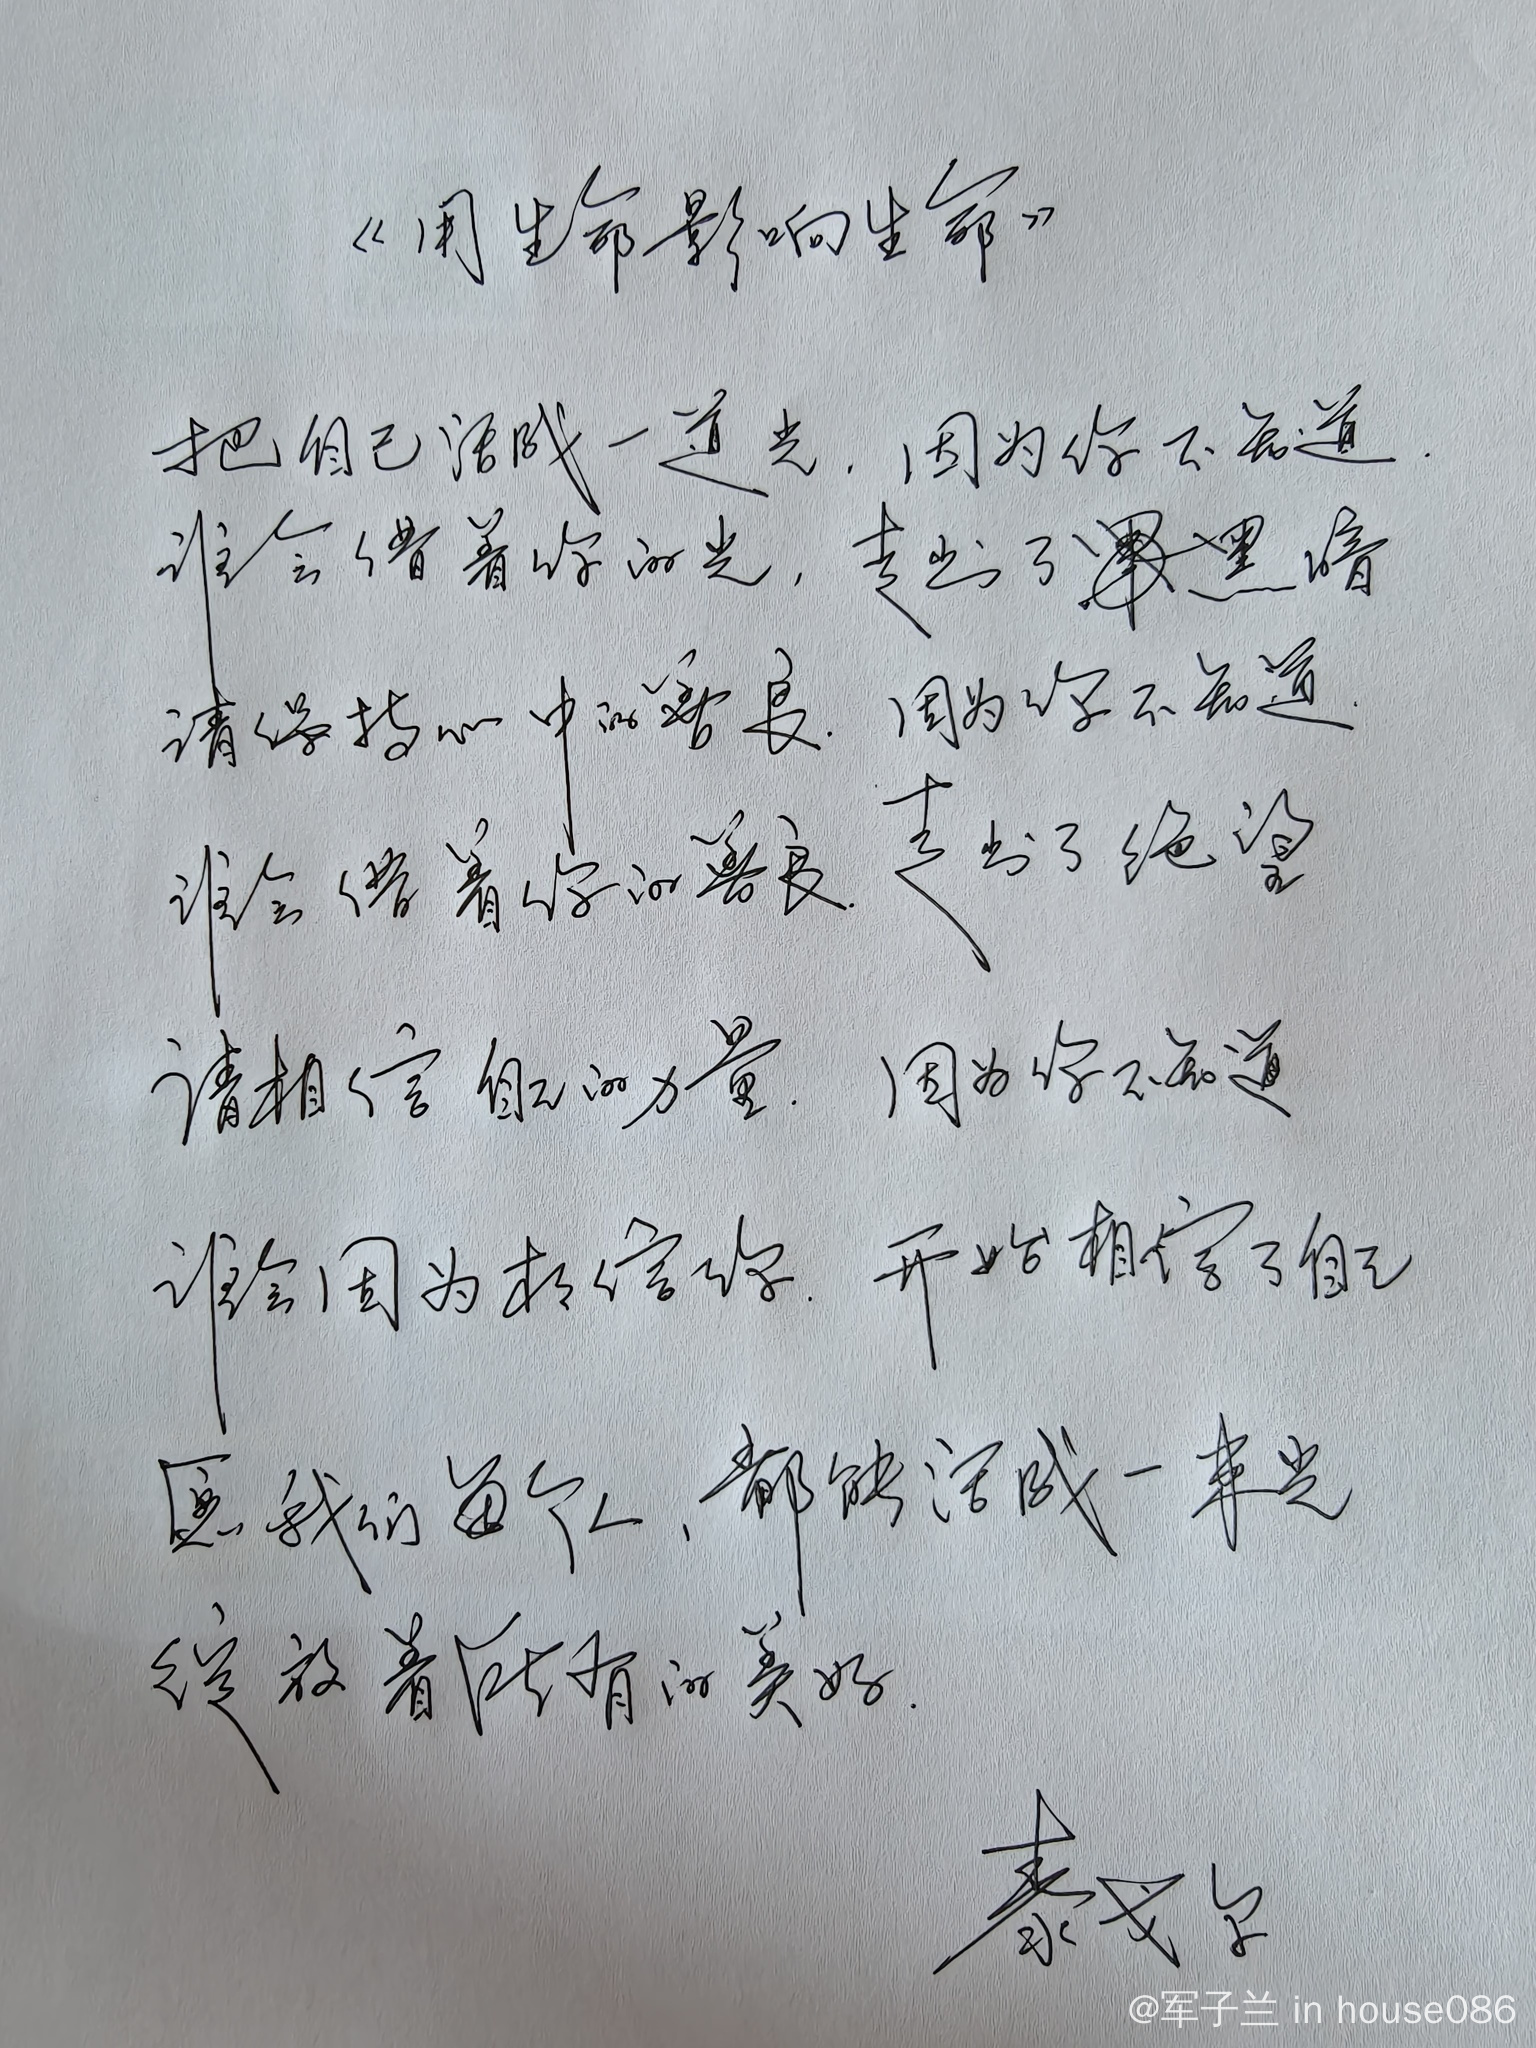 《用生命影响生命》
把自己活成一道光，因为你不知道.
谁会借着你的光，走出了黑暗
请保持心中的善良.因为你不知道.
谁会借着你的善良.走出了绝望
请相信自己的力量.因为你不知道
谁会因为相信你.开始相信了自己
愿我们每个人，都能活成一束光
绽放着所有的美好.
泰戈尔
@军子兰 in house086